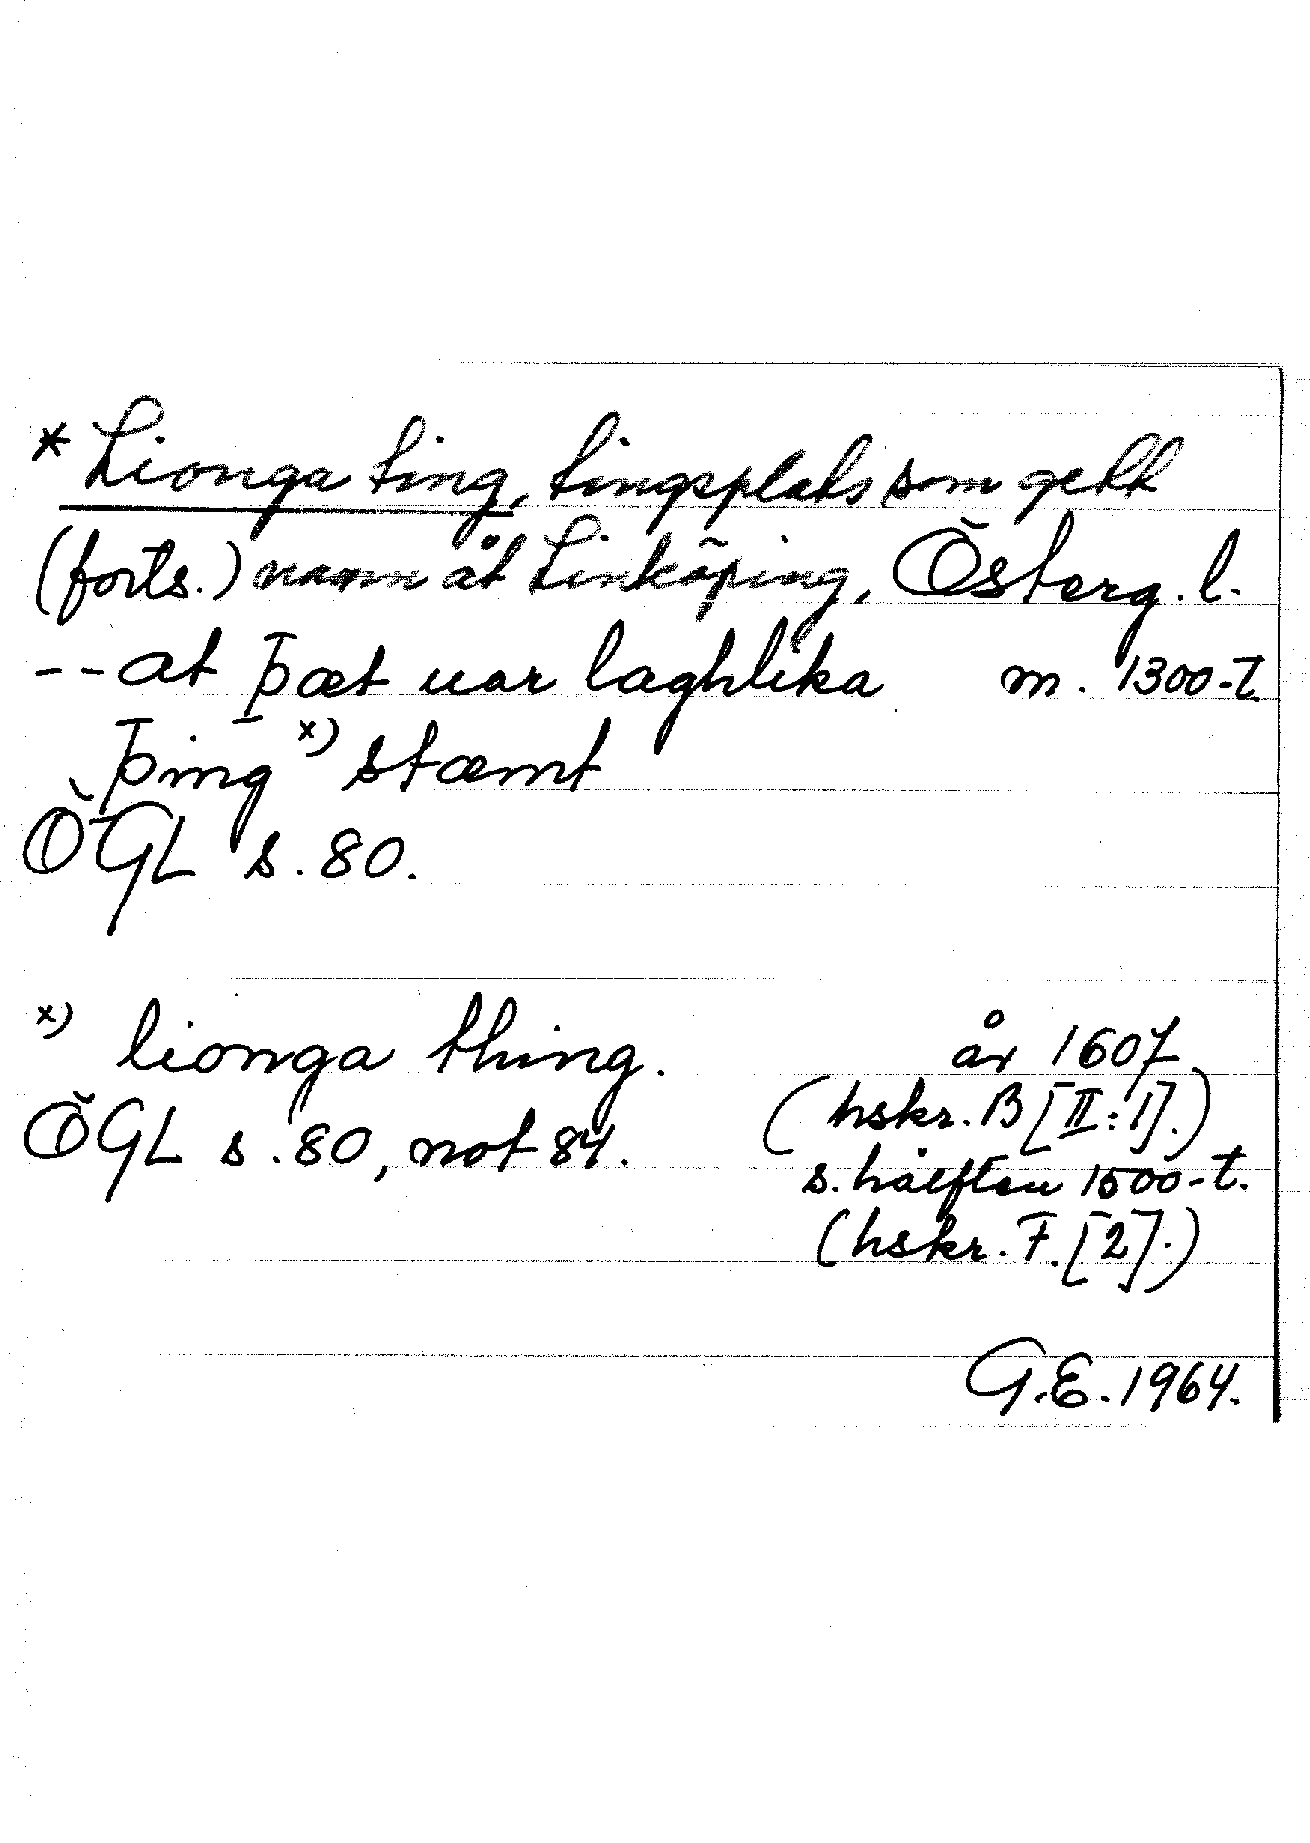 * Lionga ting, tingsplats som gett
(forts.) namn åt Linköping, Österg. l.
-- at þæt uar laghlika m. 1300-t
þing x) stæmt
ÖGL s. 80.
x) lionga thing. år 1607
(hskr. B [II:1].)
ÖGL s. 80, not 84.
s. hälften 1500-t.
(hskr. F. [2].)
G.E. 1964.